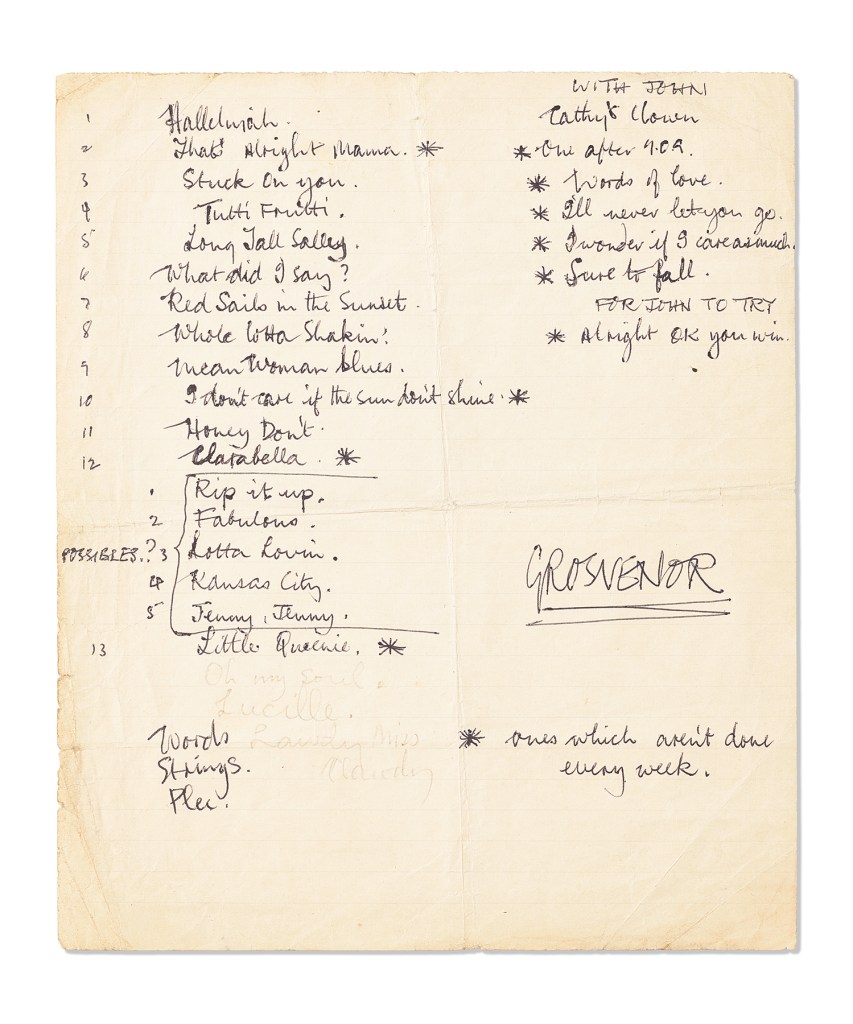 1 Hallelujah.
2 That's Alright Mama. *
3 Stuck On you.
4 Tutti Fruitti.
5 Long Tall Salley.
6 What did I say?
7 Red Sails in the Sunset.
8 Whole lotta Shakin'.
9 Mean Woman blues.
10 I don't care if the sun don't shine. *
11 Honey Don't.
12 Clarabella. *
POSSIBLES.?
1 Rip it up.
2 Fabulous.
3 Lotta Lovin.
4 Kansas City.
5 Jenny, Jenny.
13 Little Queenie. *
Oh my soul.
Lucille.
Lawdy Miss
Clawdy
Words
Strings.
Plec.
WITH JOHN
Cathy's Clown
* One after 9.09.
* Words of love.
* I'll never let you go.
* I wonder if I care as much.
* Sure to fall.
FOR JOHN TO TRY
* Alright OK you win.
GROSVENOR
* ones which aren't done
every week.